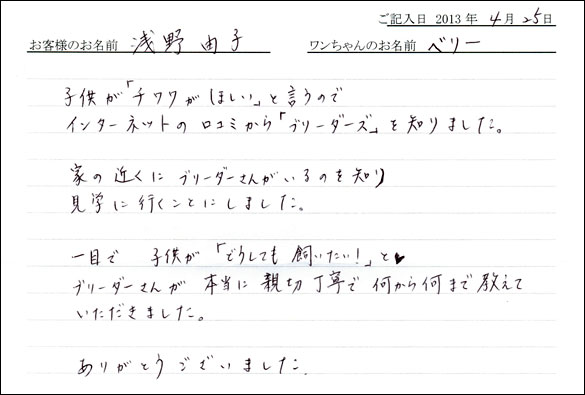 ご記入日 2013年 4月 25日
お客様のお名前 浅野由子 ワンちゃんのお名前 ベリー
子供が「チワワがほしい」と言うので
インターネットの口コミから「ブリーダーズ」を知りました。
家の近くにブリーダーさんがいるのを知り
見学に行くことにしました。
一目で 子供が「どうしても飼いたい!」と♥
ブリーダーさんが 本当に親切丁寧で何から何まで教えて
いただきました。
ありがとうございました.